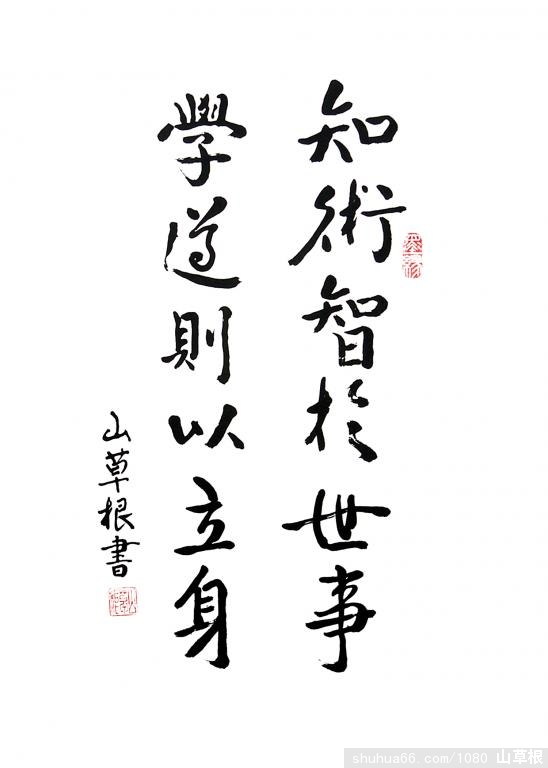 知術智於世事
學道則以立身
山草根書
shuhua66.com/1080 山草根